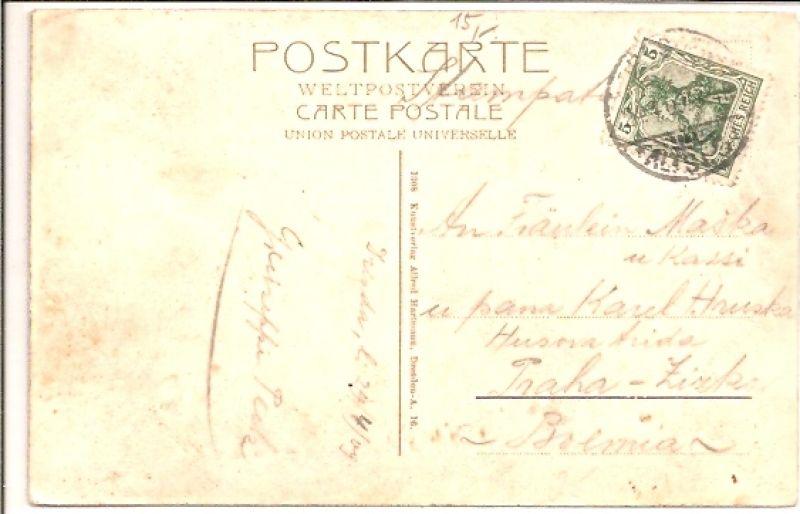 15
POSTKARTE
WELTPOSTVEREIN
CARTE POSTALE
UNION POSTALE UNIVERSELLE
5
5
ALTST
1908 Kunstverlag Alfred Hartmann, Dresden-A. 16.
An Fräulein Maška
u Kassi
u pana Karel Hruska
Husova trida
Praha - Zizko
Bremia
Giuseppe